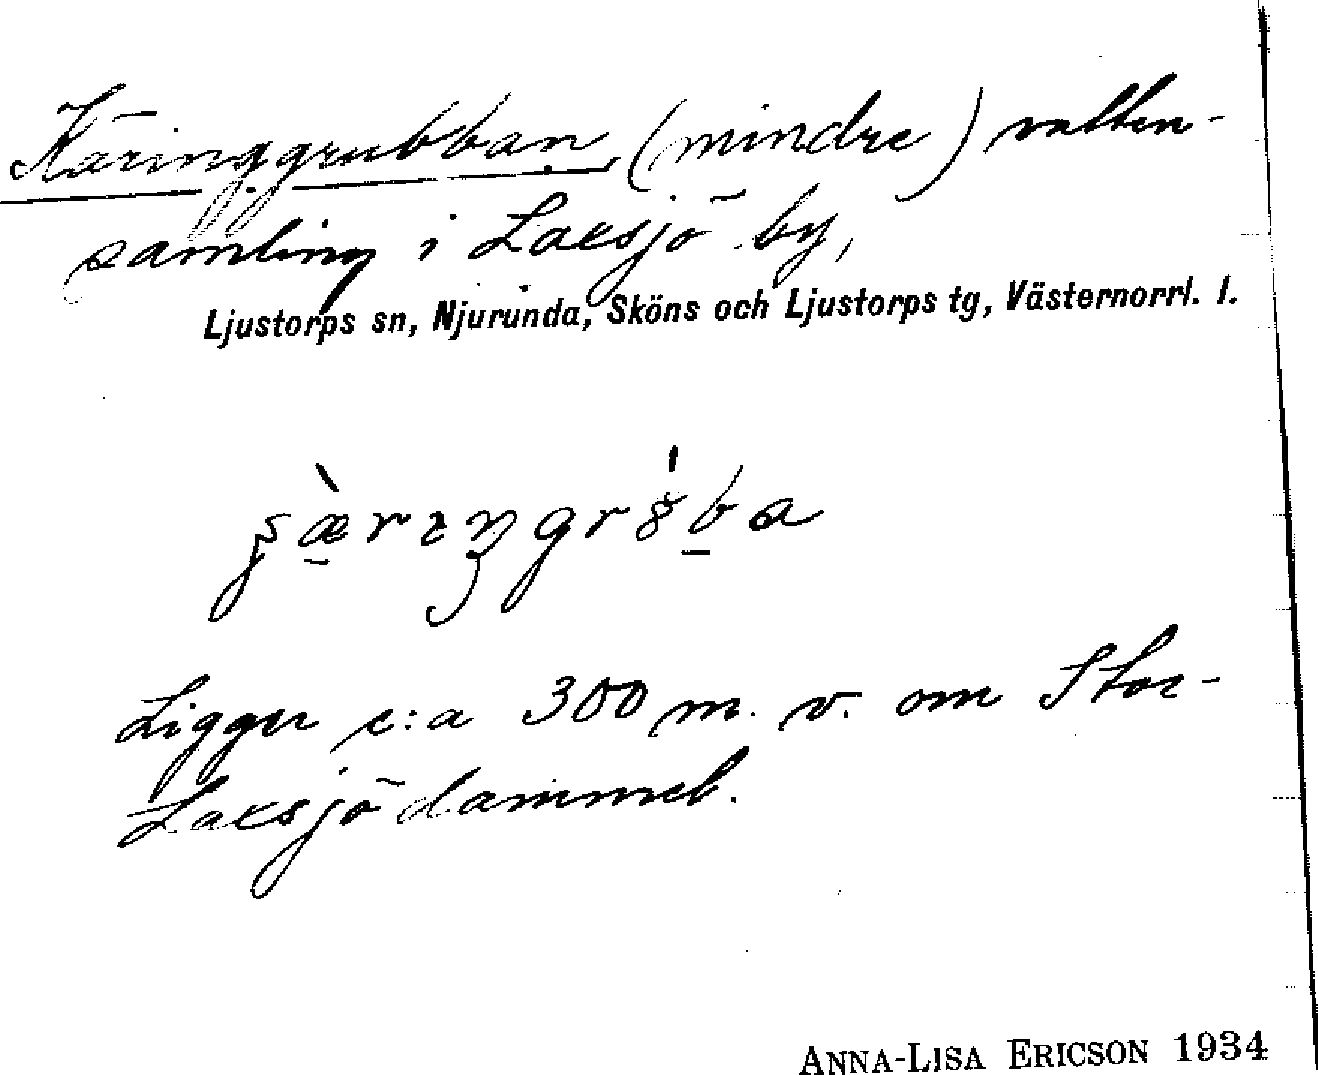 Käringgrubban, (mindre) vatten-
samling i Laxsjö by,
Ljustorps sn, Njurunda, Sköns och Ljustorps tg, Västernorrl. l.
Ligger c:a 300 m. v. om Stor-
Laxsjödammet.
ANNA-LISA ERICSON 1934